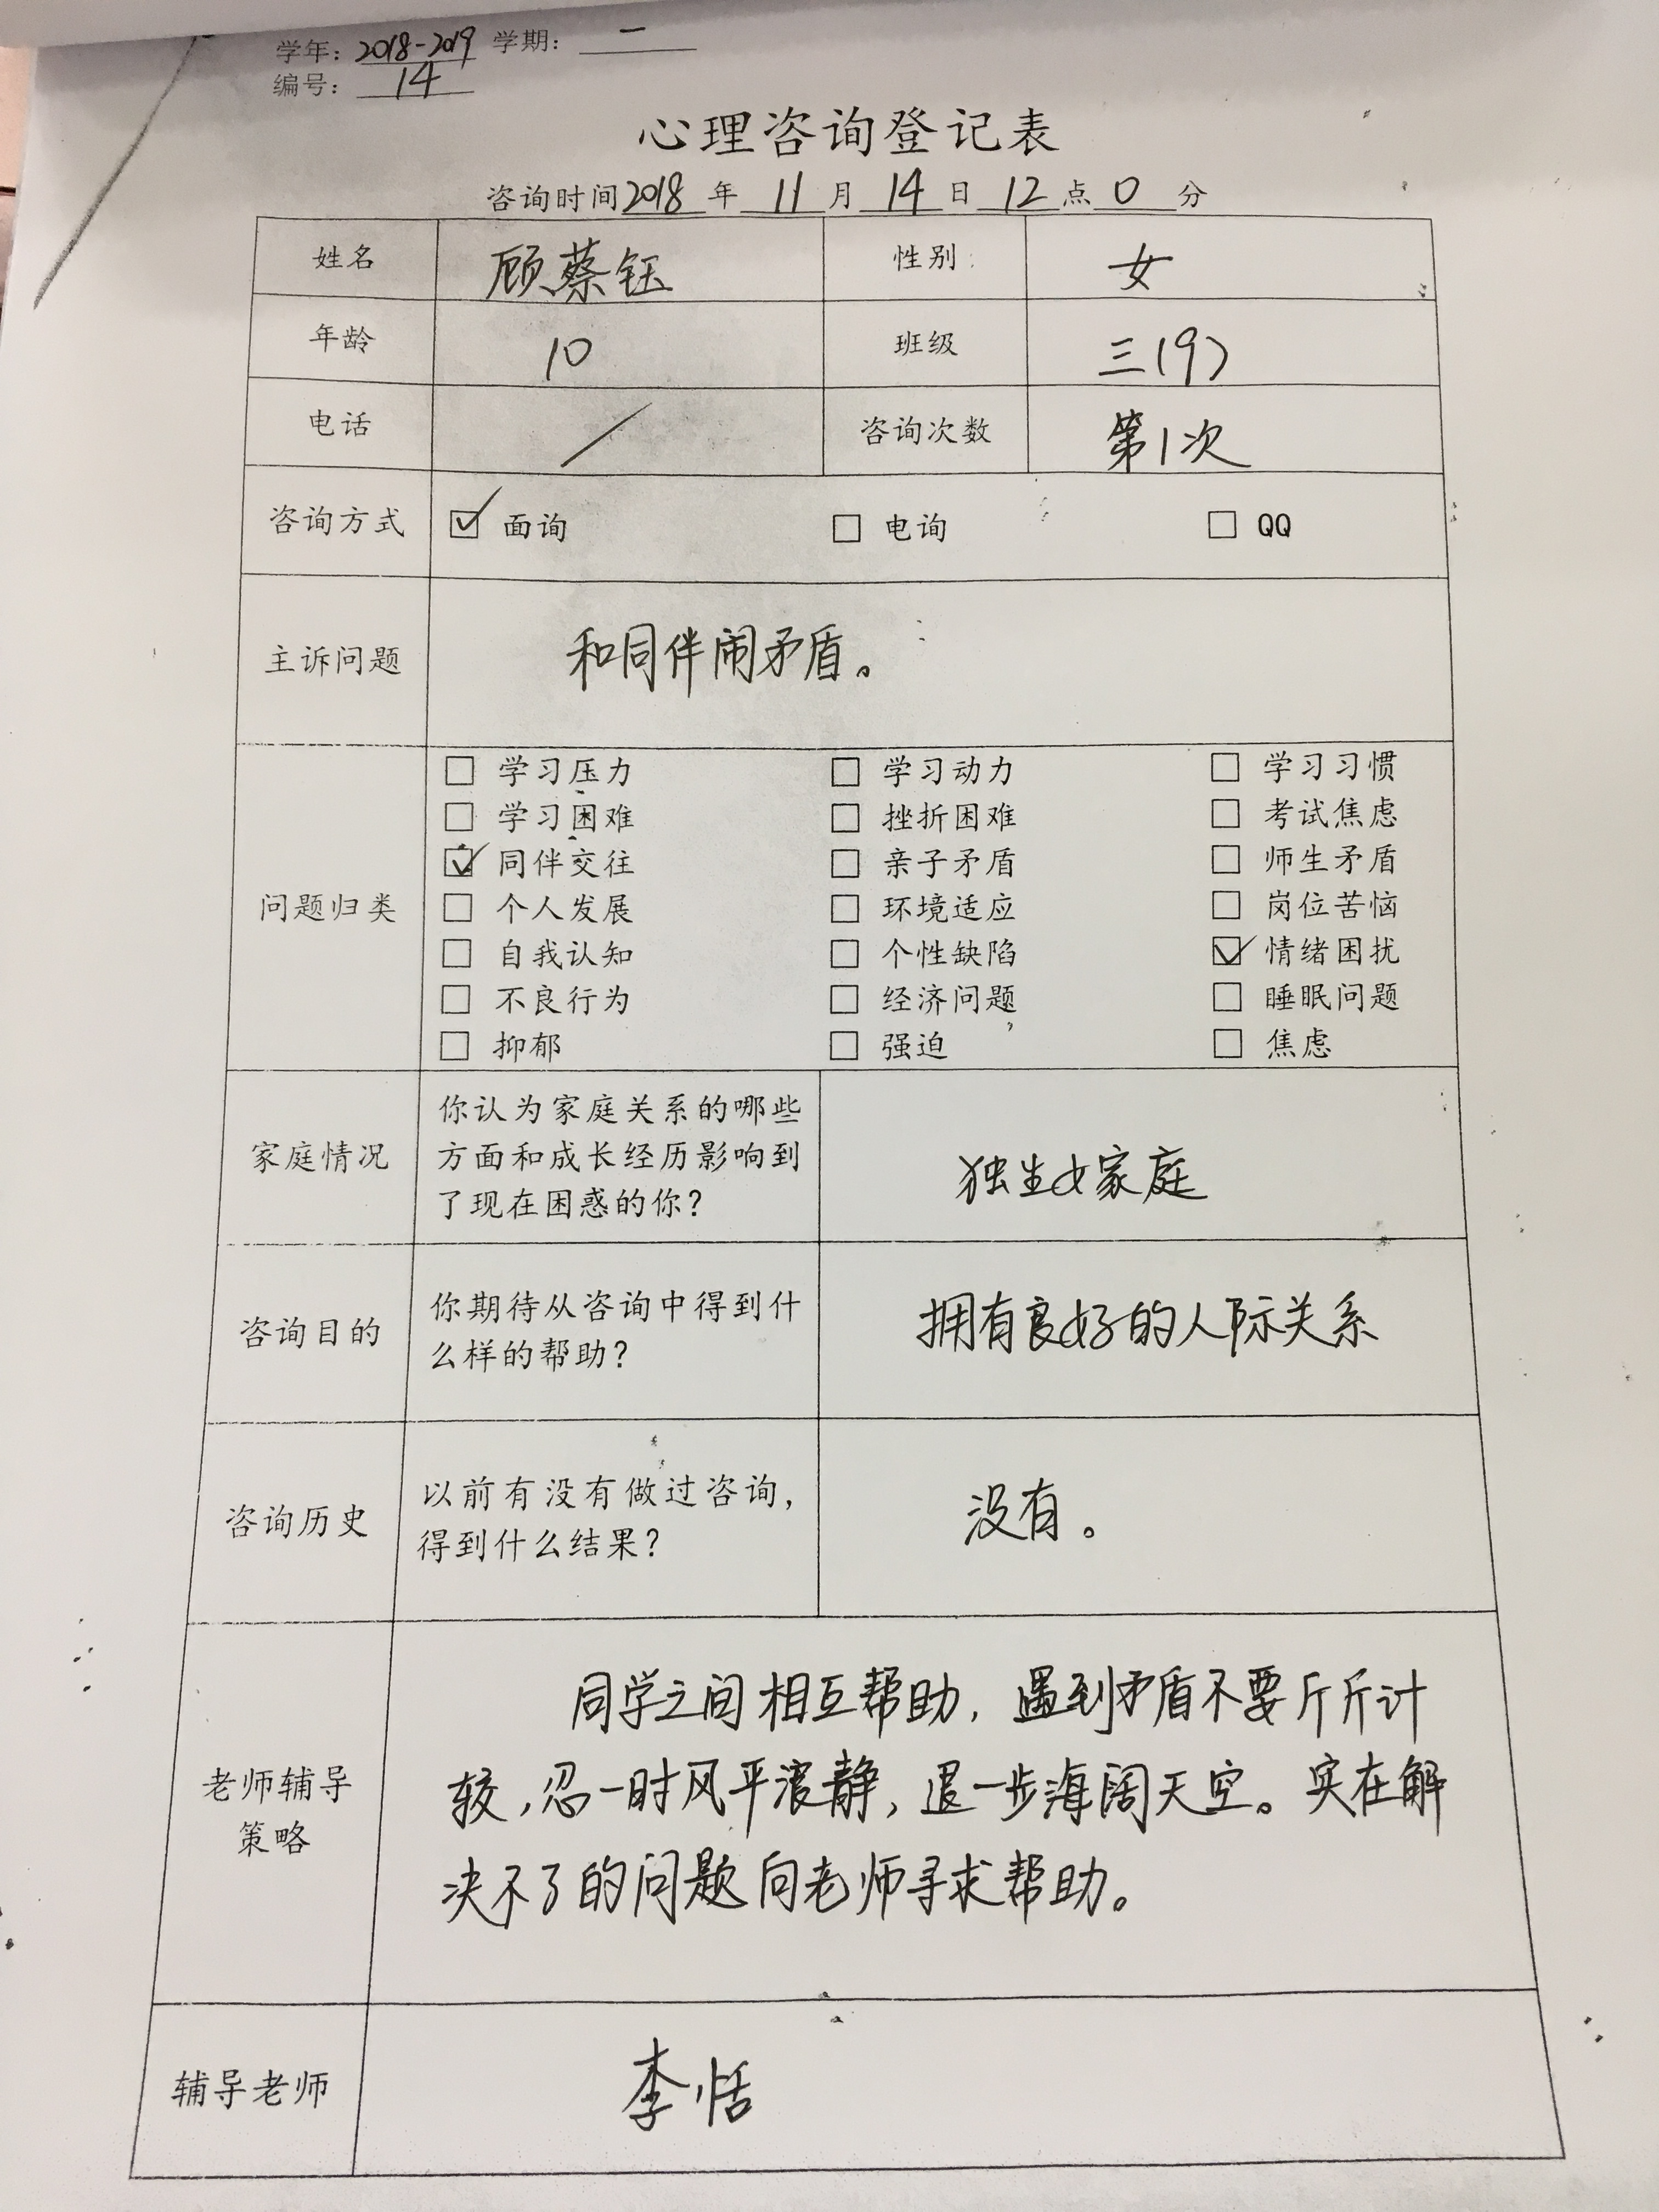 学年：2018-2019 学期：一
编号：14
心理咨询登记表
咨询时间2018年11月14日12点0分
姓名 顾蔡钰 性别 女
年龄 10 班级 三(9)
电话 / 咨询次数 第1次
咨询方式 ☑ 面询 □ 电询 □ QQ
主诉问题 和同伴闹矛盾。
□ 学习压力 □ 学习动力 □ 学习习惯
□ 学习困难 □ 挫折困难 □ 考试焦虑
☑ 同伴交往 □ 亲子矛盾 □ 师生矛盾
问题归类 □ 个人发展 □ 环境适应 □ 岗位苦恼
□ 自我认知 □ 个性缺陷 ☑ 情绪困扰
□ 不良行为 □ 经济问题 □ 睡眠问题
□ 抑郁 □ 强迫 □ 焦虑
你认为家庭关系的哪些
家庭情况 方面和成长经历影响到 独生女家庭
了现在困惑的你？
咨询目的 你期待从咨询中得到什 拥有良好的人际关系
么样的帮助？
咨询历史 以前有没有做过咨询， 没有。
得到什么结果？
同学之间相互帮助，遇到矛盾不要斤斤计
老师辅导 较，忍一时风平浪静，退一步海阔天空。实在解
策略
决不了的问题向老师寻求帮助。
辅导老师 李恬